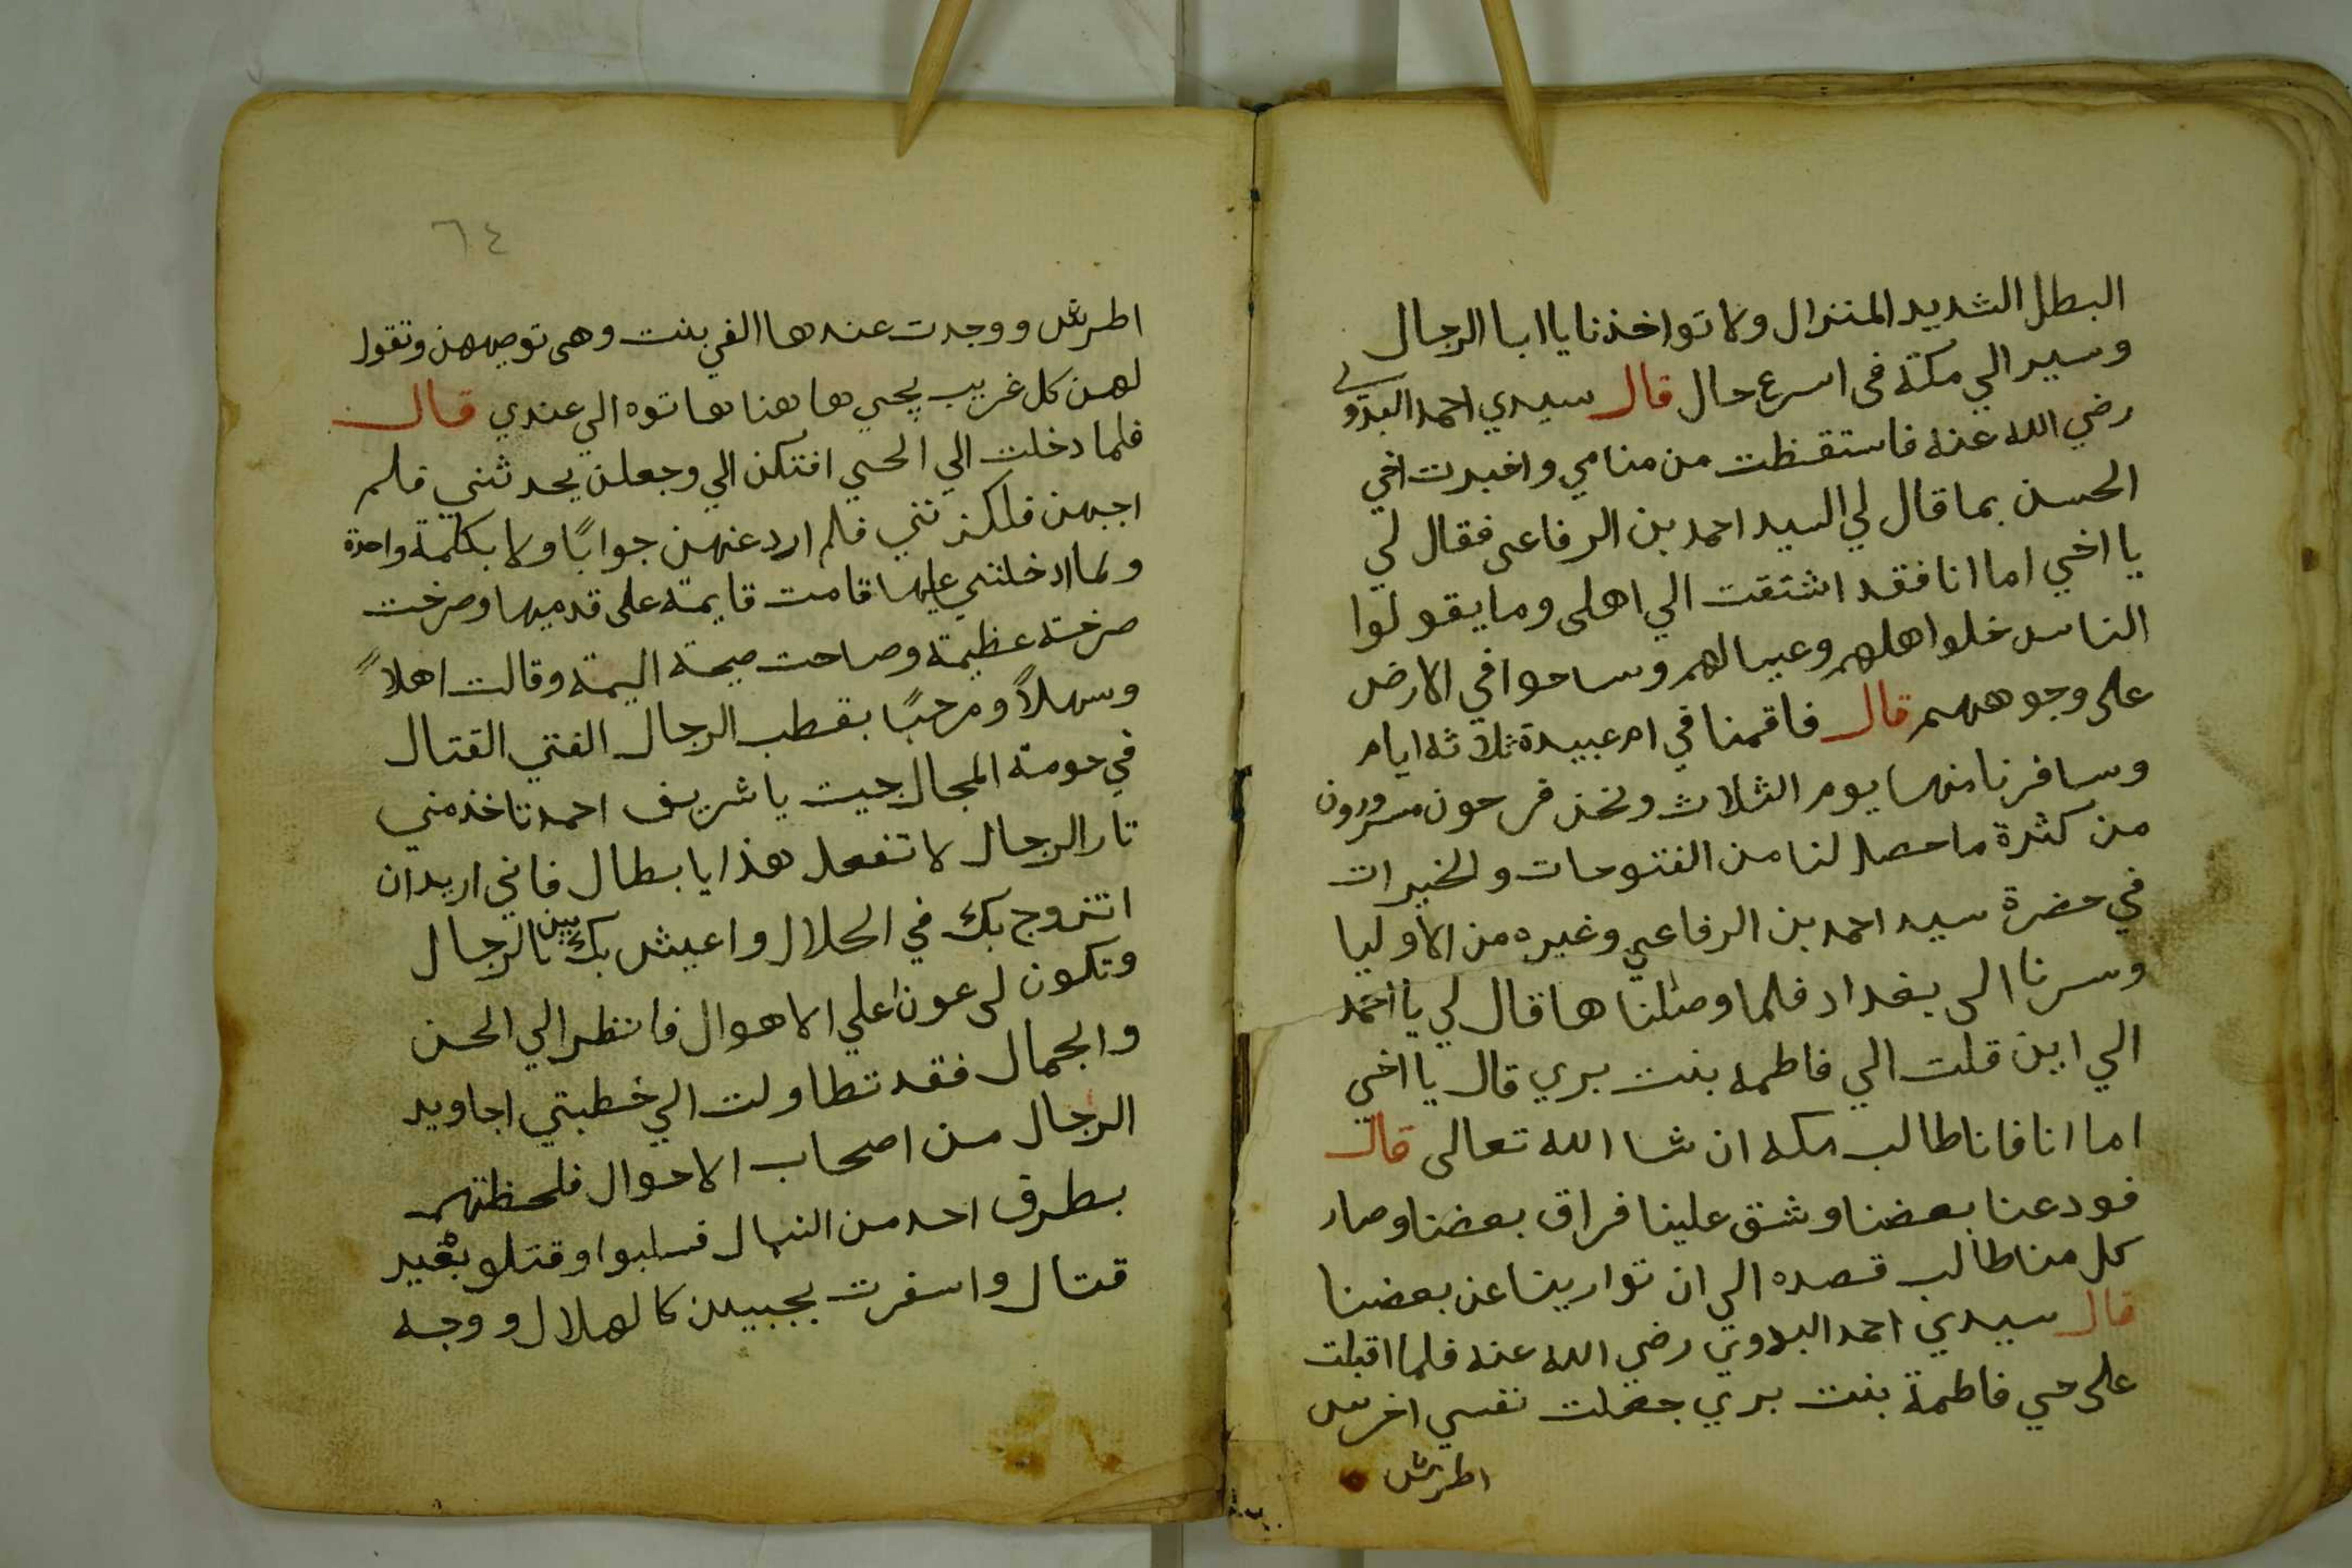 البطل الشديد المنزال ولا تواخذنا يا ابا الرجال
وسير الي مكة في اسرع حال قال سيدي احمد البدوي
رضي الله عنه فاستقظت من منامي واخبرت اخي
الحسن بما قال لي السيد احمد بن الرفاعي فقال لي
يا اخي اما انا فقد اشتقت الي اهلي وما يقولوا
الناس خلوا اهلهم وعيالهم وساحوا في الارض
على وجوههم قال فاقمنا في ام عبيدة ثلاثه ايام
وسافرنا منها يوم الثلاث ونحن فرحون مسرورون
من كثرة ما حصل لنا من الفتوحات والخيرات
في حضرة سيد احمد بن الرفاعي وغيره من الاوليا
وسرنا الى بغداد فلما وصلنا ها قال لي يا احمد
الي اين قلت الي فاطمه بنت بري قال يا اخي
اما انا فانا طالب مكه ان شا الله تعالى قال
فودعنا بعضنا وشق علينا فراق بعضنا وصار
كل منا طالب قصده الي ان توارينا عن بعضنا
قال سيدي احمد البدوي رضي الله عنه فلما اقبلت
على حي فاطمة بنت بري جعلت نفسي اخرس
اطرش
٦٤
اطرش ووجدت عندها الفي بنت وهي توصيهن وتقول
لهن كل غريب يجي ها هنا هاتوه الي عندي قال
فلما دخلت الي الحي افتكن الي وجعلن يحدثنني فلم
اجبهن فلكزنني فلم ارد عنهن جوابًا ولا بكلمة واحدة
ولما ادخلنني عليها قامت قايمة على قدميها وصرخت
صرخة عظيمة وصاحت صيحة اليمة وقالت اهلاً
وسهلاً ومرحبًا بقطب الرجال الفتي القتال
في حومة المجال جيت يا شريف احمد تاخذ مني
تار الرجال لا تفعل هذا يا بطال فاني اريد ان
اتزوج بك في الحلال واعيش بك بين الرجال
وتكون لي عونا علي الاهوال فانظر الي الحسن
والجمال فقد تطاولت الي خطبتي اجاويد
الرجال من اصحاب الاحوال فلحظتهم
بطرف احد من النبال فسلبوا وقتلو بغير
قتال واسفرت بجبين كالهلال ووجه